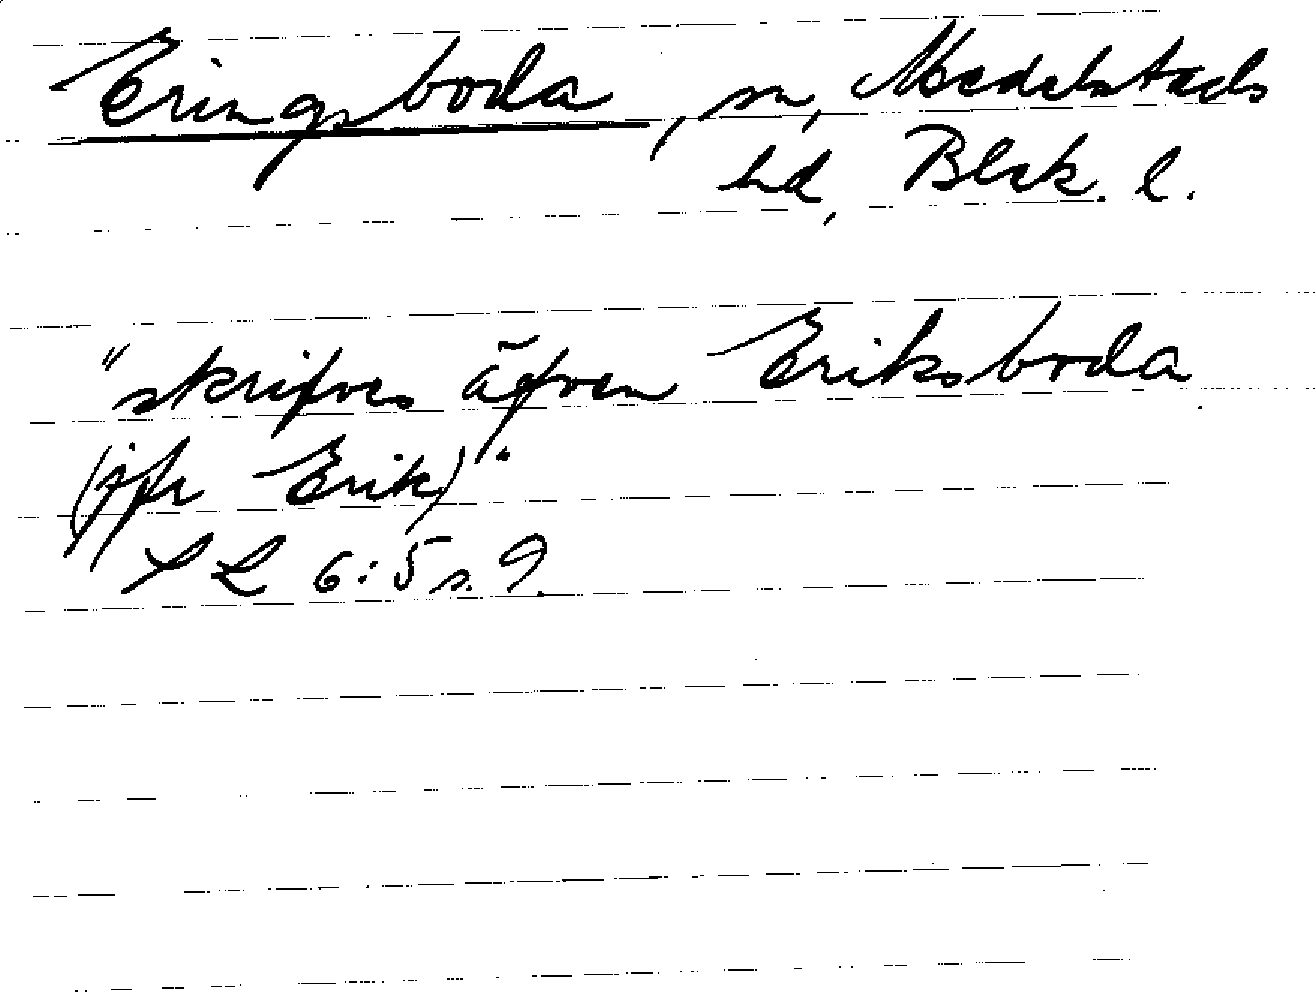 Eringsboda, sn, Medelstads
hd, Blek. l.
"skrifves äfven Eriksboda
(jfr Erik)"
SL 6:5 s. 9.